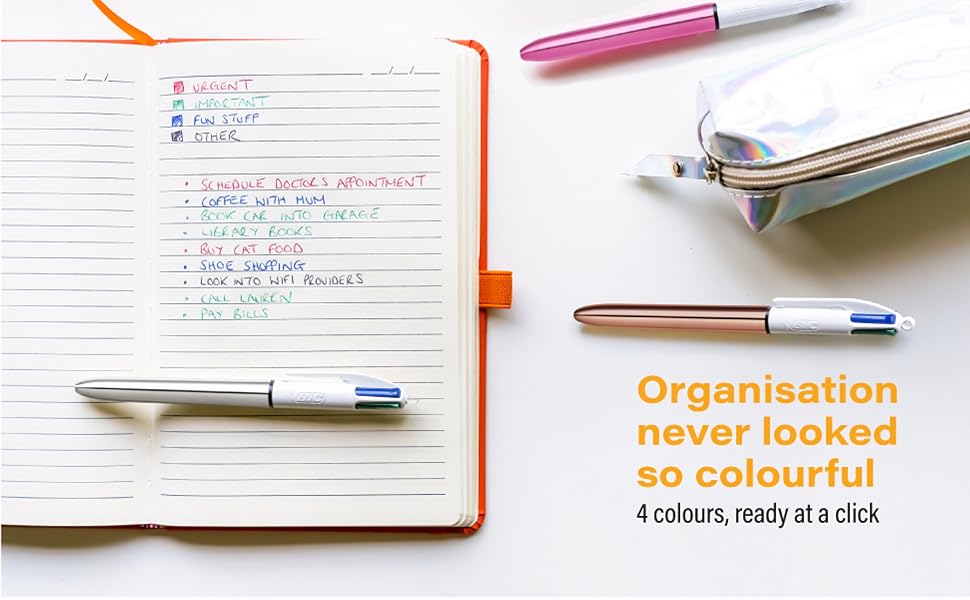 __/__/__
__/__/__
URGENT
IMPORTANT
FUN STUFF
OTHER
• SCHEDULE DOCTORS APPOINTMENT
• COFFEE WITH MUM
• BOOK CAR INTO GARAGE
• LIBRARY BOOKS
• BUY CAT FOOD
• SHOE SHOPPING
• LOOK INTO WIFI PROVIDERS
• CALL LAUREN
• PAY BILLS
BIC
BIC
Organisation
never looked
so colourful
4 colours, ready at a click